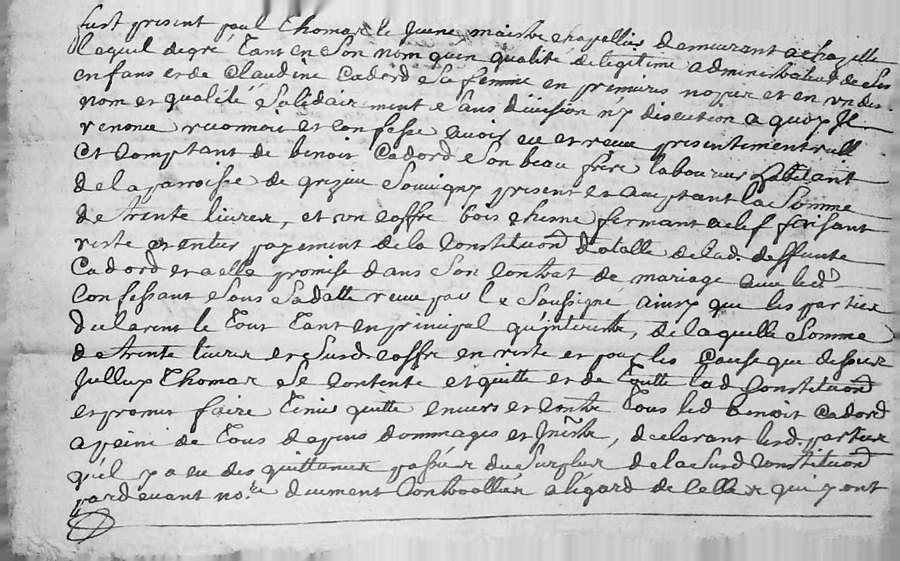 fust present paul Thomas le Jeune maistre chapellier demeurant a chazelle
lequel de gré tant en son nom qu'en qualité de legitime administrateur de ses
enfans et de Claudine Cadord sa femme en premieres nopces et en un des
nom et qualité solidairement sans division n'y discution a quoy Il
renonce reconnoit et confesse avoir eu et receu presentement
et Comptant de benoit Cadord son beau frere laboureur habitant
de la parroisse de grezieu Souvigny present et acceptant la Somme
de trente livres, et un coffre bois chesne fermant a clef faisant
reste et entier payement de la Constitu[ti]on dotalle de lad. deffunte
Cadord et a elle promise dans son Contrat de mariage avec led
Confessant sous sa datte receu par le Soussigné ainsy que les parties
declarent le tout tant en principal qu'interests, de laquelle Somme
de trente livres et susd. coffre en reste et pour les Cause que dessus
Thomas se Contente et quitte et de quitte lad Constitu[ti]on
et promet faire tenir quitte envers et Contre tous led benoit Cadord
a peine de tous depens dommages et Interests, declarant lesd. parties
qu'il y a eu des quittances passées du Surplus de la susd. Constitu[ti]on
pardevant no.re duement Controollées a legard de Celles qui y ont